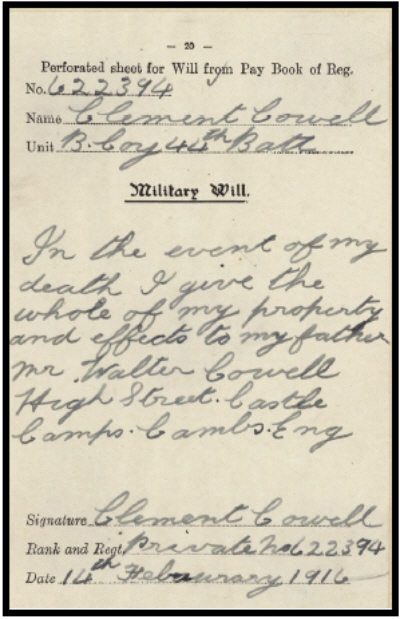 — 20 —
Perforated sheet for Will from Pay Book of Reg.
No. 622394
Name Clement Cowell
Unit B. Coy 44th Batt
Military Will.
In the event of my
death I give the
whole of my property
and effects to my father
Mr. Walter Cowell
High Street. Castle
Camps. Cambs. Eng
Signature Clement Cowell
Rank and Regt. Private No 622394
Date 14th Febuurary 1916